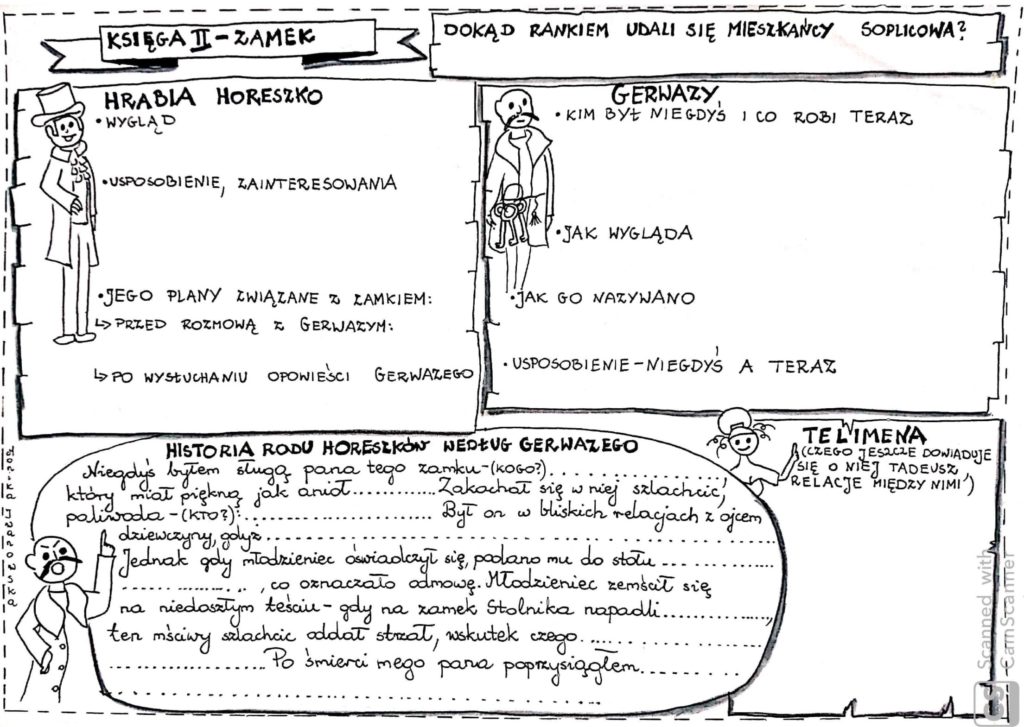 KSIĘGA II - ZAMEK
DOKĄD RANKIEM UDALI SIĘ MIESZKAŃCY SOPLICOWA?
HRABIA HORESZKO
• WYGLĄD
• USPOSOBIENIE, ZAINTERESOWANIA
• JEGO PLANY ZWIĄZANE Z ZAMKIEM:
↳ PRZED ROZMOWĄ Z GERWAZYM:
↳ PO WYSŁUCHANIU OPOWIEŚCI GERWAZEGO
GERWAZY
• KIM BYŁ NIEGDYŚ I CO ROBI TERAZ
• JAK WYGLĄDA
• JAK GO NAZYWANO
• USPOSOBIENIE - NIEGDYŚ A TERAZ
HISTORIA RODU HORESZKÓW WEDŁUG GERWAZEGO
Niegdyś byłem sługą pana tego zamku - (KOGO?)..............
który miał piękną jak anioł............ Zakochał się w niej szlachcic,
paliwoda - (KTO?):........................ Był on w bliskich relacjach z ojcem
dziewczyny, gdyż..........................................
Jednak gdy młodzieniec oświadczył się, podano mu do stołu ............
................, co oznaczało odmowę. Młodzieniec zemścił się
na niedoszłym teściu - gdy na zamek Stolnika napadli............
ten mściwy szlachcic oddał strzał, wskutek czego..................
.................. Po śmierci mego pana poprzysiągłem............
..........................................
TELIMENA
(CZEGO JESZCZE DOWIADUJE
SIĘ O NIEJ TADEUSZ,
RELACJE MIĘDZY NIMI)
Scanned with
CS CamScanner